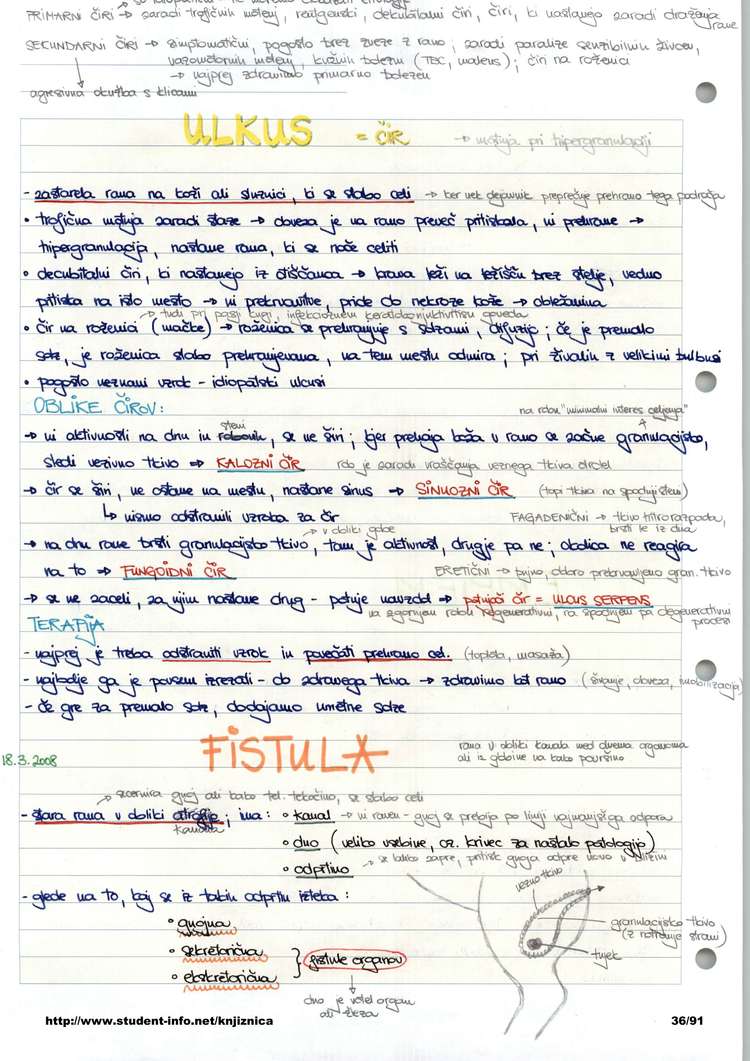 PRIMARNI ČIRI → zaradi trofičnih motenj, rentgenski, dekubitalni čiri, čiri, ki nastanejo zaradi draženja rane
SEKUNDARNI ČIRI → simptomatični, pogosto brez zveze z rano, zaradi paralize senzibilnih živcev,
vazomotornih motenj, kužnih bolezni (TBC, maleus); čiri na roženici
→ najprej zdravimo primarno bolezen
agresivna okužba s klicami
ULKUS = ČIR → motnja pri hipergranulaciji
- zastarela rana na koži ali sluznici, ki se slabo celi → ker nek dejavnik preprečuje prehrano tega področja
• trofična motnja zaradi staze → obveza je na rano preveč pritiskala, ni prehrane →
hipergranulacija, nastane rana, ki se noče celiti
• decubitalni čiri, ki nastanejo iz otiščanca → krava leži na ležišču brez stelje, vedno
pritiska na isto mesto → ni prekrvavitve, pride do nekroze kože → obležanina
→ tudi pri pasji kugi, infekcioznem keratokonjunktivitisu goveda
• čir na roženici (mačke) → roženica se prehranjuje s solzami, difuzijo; če je premalo
solz, je roženica slabo prehranjevana, na tem mestu odmira; pri živalih z velikimi bulbusi
• pogosto neznani vzrok - idiopatski ulcusi
OBLIKE ČIROV:
na robu "minimalni interes celjenja"
→ ni aktivnosti na dnu in robovih, se ne širi; kjer prehaja koža v rano se začne granulacijsko,
steni
sledi vezivno tkivo ⇒ KALOZNI ČIR rob je zaradi vraščanja veznega tkiva otrdel
→ čir se širi, ne ostane na mestu, nastane sinus ⇒ SINUOZNI ČIR (topi tkiva na spodnji steni)
↳ nismo odstranili vzroka za čir
FAGADENIČNI → tkivo hitro razpada, brsti le iz dna
→ v obliki gobe
→ na dnu rane brsti granulacijsko tkivo, tam je aktivnost, drugje pa ne; okolica ne reagira
na to ⇒ FUNGOIDNI ČIR ERETIČNI → bujno, dobro prekrvavljeno gran. tkivo
→ se ne zaceli, za njim nastane drug - potuje navzdol ⇒ potujoč čir = ULCUS SERPENS
na zgornjem robu regenerativni, na spodnjem pa degenerativni procesi
TERAPIJA
- najprej je treba odstraniti vzrok in povečati prehrano cel. (toplota, masaža)
- najbolje ga je povsem izrezati - do zdravega tkiva → zdravimo kot rano (šivanje, obveza, imobilizacija)
- če gre za premalo solz, dodajamo umetne solze
FISTULA
rana v obliki kanala med dvema organoma
ali iz globine na kako površino
18.3.2008
→ secernira gnoj ali kako tel. tekočino, se slabo celi
- stara rana v obliki ; ima: • kanal → ni raven - gnoj se prebija po liniji najmanjšega odpora
kanala
• dno (veliko vsebine, oz. krivec za nastalo patologijo)
• odprtino → se lahko zapre, pritisk gnoja odpre novo v bližini
- glede na to, kaj se iz takih odprtin izteka:
• gnojna
• sekretorična
• ekskretorična
} fistule organov
dno je votel organ
ali žleza
vezno tkivo
granulacijsko tkivo
(z notranje strani)
tujek
http://www.student-info.net/knjiznica 36/91